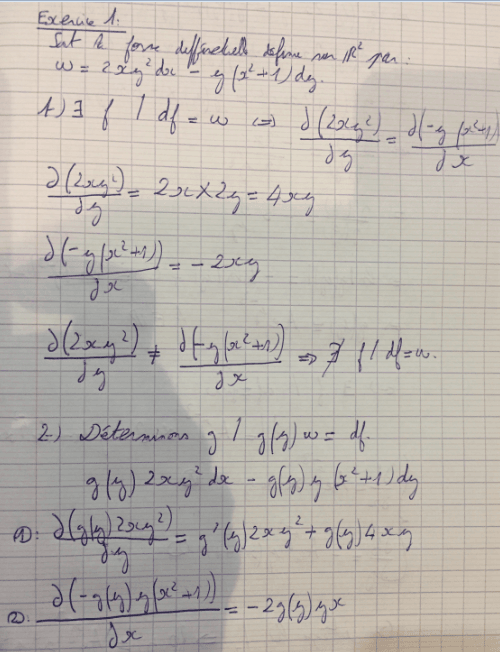 Exercice 1:
Soit la forme différentielle définie sur ℝ² par:
w = 2xy² dx - y(x²+1) dy.
1) ∃ f / df = w ⇔ ∂(2xy²)/∂y = ∂(-y(x²+1))/∂x
∂(2xy²)/∂y = 2x × 2y = 4xy
∂(-y(x²+1))/∂x = -2xy
∂(2xy²)/∂y ≠ ∂(-y(x²+1))/∂x ⇒ ∄ f / df = w.
2) Déterminons g / g(y) w = df.
g(y) 2xy² dx - g(y) y (x²+1) dy
①: ∂(g(y) 2xy²)/∂y = g'(y) 2xy² + g(y) 4xy
②: ∂(-g(y) y(x²+1))/∂x = -2g(y) yx